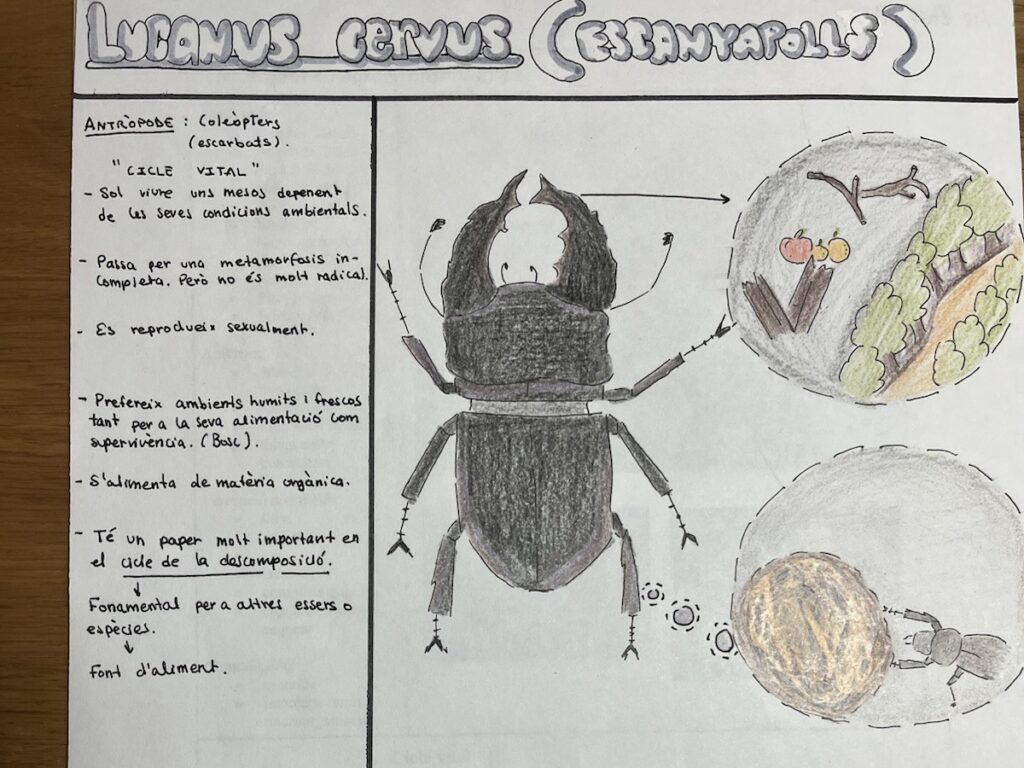 LUCANUS CERVUS (ESCANYAPOLLS)
ANTRÒPODE : Coleòpters
(escarbats).
"CICLE VITAL"
- Sol viure uns mesos depenent
de les seves condicions ambientals.
- Passa per una metamorfosis in-
completa. Però no és molt radical.
- Es reprodueix sexualment.
- Prefereix ambients humits i frescos
tant per a la seva alimentació com
supervivència. (Bosc).
- S'alimenta de matèria orgànica.
- Té un paper molt important en
el cicle de la descomposició.
Fonamental per a altres essers o
espècies.
Font d'aliment.